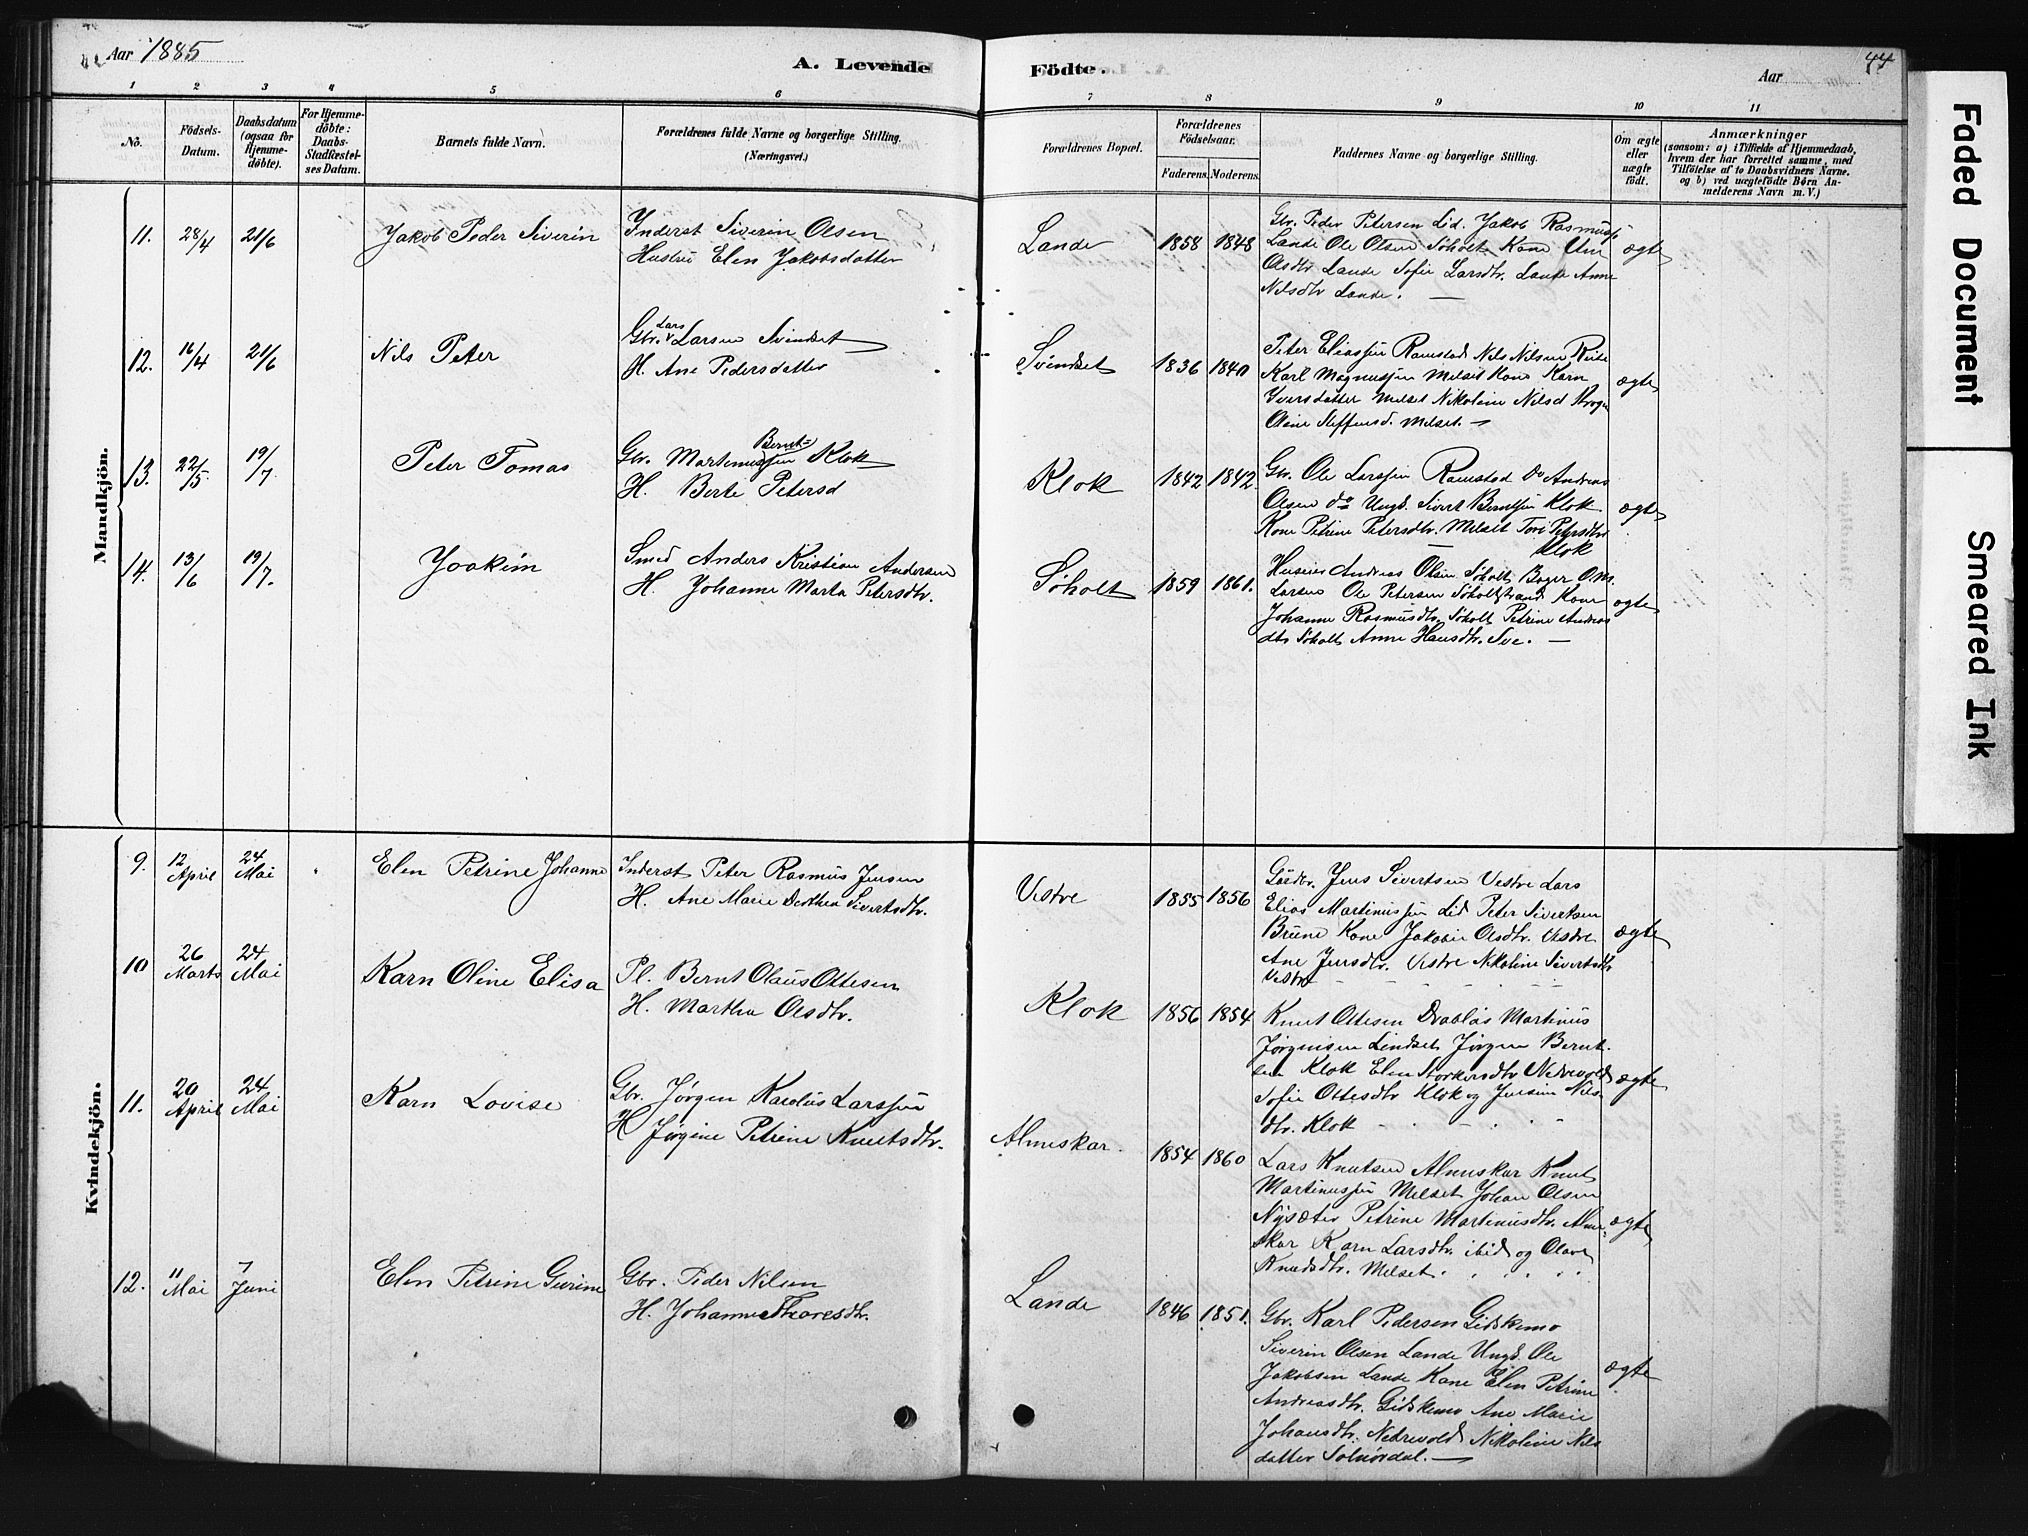 Aar 1885
A. Levende
Födte.
Aar
44
1 2 3 4 5 6 7 8 9 10 11
No.
Födsels-Datum.
Daabsdatum (ogsaa for Hjemme-döbte).
For Hjemme-döbte: Daabs-Stadfæstel-ses Datum.
Barnets fulde Navn.
Forældrenes fulde Navne og borgerlige Stilling.
(Næringsvei.)
Forældrenes Bopæl.
Forældrenes Födselsaar.
Faderens. Moderens.
Faddernes Navne og borgerlige Stilling.
Om ægte eller uægte födt.
Anmærkninger
(saasom: a) i Tilfælde af Hjemmedaab,
hvem der har forrettet samme, med
Tilföielse af to Daabsvidners Navne.
og b) ved uægtefödte Børn An-
melderens Navn m. V.)
Mandkjön.
11. 28/4 21/6 Jakob Peder Siverin
Inderst Siverin Olsen
Hustru Elen Jakobsdatter
Lande 1858 1848
Gbr. Peder Petersen Lid. Jakob Rasmuss
Lande Ole Olsen Søholt Kone
Olsdtr Lande Sofie Larsdtr. Lande Anne
Nilsdtr Lande. —
ægte
12. 16/4 21/6 Nils Peter
Gbr. Lars Larsen Svindset
H. Ane Pedersdatter
Svindset 1836 1840
Peter Eliassen Ramstad Nils Nilsen
Karl Magnussen Melset Kone Karn
Iversdatter Melset Nikoline Nilsd
Oline Steffensd. Melset. —
ægte
13. 22/5 19/7 Peter Tomas
Gbr. Martinus Berntsen Klok
H. Berte Petersd
Klok 1842 1842.
Gbr. Ole Larssen Ramstad Do Andreas
Olsen do Ungd. Sivert Berntsen Klok
Kone Petrine Petersdtr. Melset Tori Petersdtr
Klok
ægte
14. 13/6 19/7. Joakim
Smed Anders Kristian Andersen
H. Johanne Marta Petersdtr.
Søholt 1859 1861.
Andreas Olsen Søholt
Larsen Ole Petersen Søholtstrand Kone
Johanne Rasmusdtr. Søholt Petrine Andreas
dtr Søholt Anne Hansdtr. —
ægte
Kvindekjön.
9. 12 April 24 Mai Elen Petrine Johanne
Inderst Peter Rasmus Jensen
H. Ane Marie Dorthea Sivertsdtr.
Vestre 1855 1856
Gårdbr. Jens Sivertsen Vestre Lars
Elias Martinussen Lid Peter Sivertsen
Brune Kone Jakobie Olsdtr. Vestre
Ane Jensdtr. Vestre Nikoline Sivertsdtr
Vestre
ægte
10 26 Marts 24 Mai Karn Oline Elisa
Pl. Bernt Olaus Ottesen
H. Martha Olsdtr.
Klok 1856 1854
Knut Ottesen Drabløs Martinus
Jørgensen Lindset Jørgen Bernt-
sen Klok Elen Storkersdtr Nedrevold
Sofie Ottesdtr Klok og Jensine Nils
dtr. Klok
ægte
11. 20 April 24 Mai Karn Lovise
Gbr. Jørgen Karolus Larssen
H Jørgine Petrine Knutsdtr.
Almeskar. 1854 1860
Lars Knutsen Almeskar Knut
Martinussen Melset Johan Olsen
Nysæter Petrine Martinusdtr. Alme-
skar Karn Larsdtr. ibid og Olave
Knudsdtr. Melset.
ægte
12. 11 Mai 7 Juni Elen Petrine Gurine
Gbr. Peder Nilsen
H. Johanne Thoresdtr.
Lande 1846 1851.
Gbr. Karl Pedersen Gidskemo
Siverin Olsen Lande Ungd. Ole
Jakobsen Lande Kone Elen Petrine
Andreasdtr. Gidskemo Ane Marie
Johansdtr. Nedrevold Nikoline Nils
datter Solnørdal. —
ægte
Faded Document
Smeared Ink